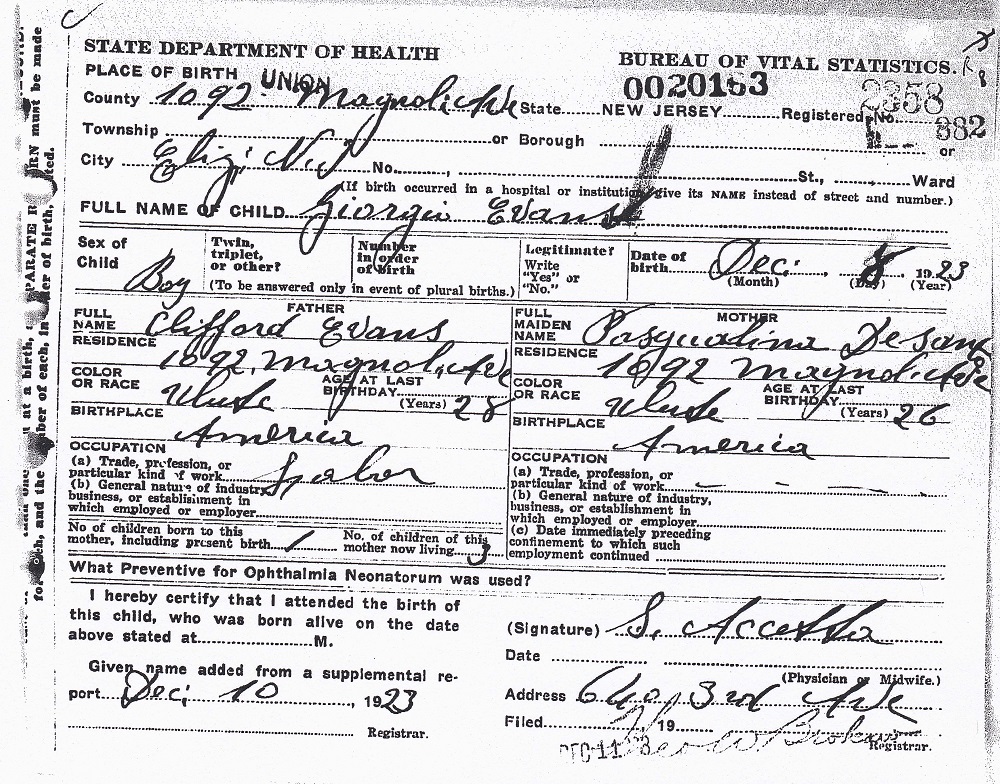 STATE DEPARTMENT OF HEALTH
BUREAU OF VITAL STATISTICS.
PLACE OF BIRTH UNION
0020163
2358
County 1092 Magnolia Ave State NEW JERSEY Registered No. 882
Township or Borough or
City Eliz. N.J. No. , St., Ward
(If birth occurred in a hospital or institution, give its NAME instead of street and number.)
FULL NAME OF CHILD Giorgio Evans
Sex of Child Boy
Twin, triplet, or other?
Number in order of birth
(To be answered only in event of plural births.)
Legitimate? Write "Yes" or "No."
Date of birth Dec. 8 1923
(Month) (Day) (Year)
FATHER
FULL NAME Clifford Evans
RESIDENCE 1092 Magnolia Ave
COLOR OR RACE White
AGE AT LAST BIRTHDAY (Years) 28
BIRTHPLACE America
OCCUPATION
(a) Trade, profession, or particular kind of work Labor
(b) General nature of industry, business, or establishment in which employed or employer
MOTHER
FULL MAIDEN NAME Pasqualina
RESIDENCE 1092 Magnolia Ave
COLOR OR RACE White
AGE AT LAST BIRTHDAY (Years) 26
BIRTHPLACE America
OCCUPATION
(a) Trade, profession, or particular kind of work
(b) General nature of industry, business, or establishment in which employed or employer
(c) Date immediately preceding confinement to which such employment continued
No of children born to this mother, including present birth 1
No. of children of this mother now living 3
What Preventive for Ophthalmia Neonatorum was used?
I hereby certify that I attended the birth of
this child, who was born alive on the date
above stated at M.
Given name added from a supplemental re-
port Dec. 10, 1923
Registrar.
(Signature) S. Accetta
Date
(Physician or Midwife.)
Address 640, 3rd Ave
Filed 19
DEC 11
Registrar.